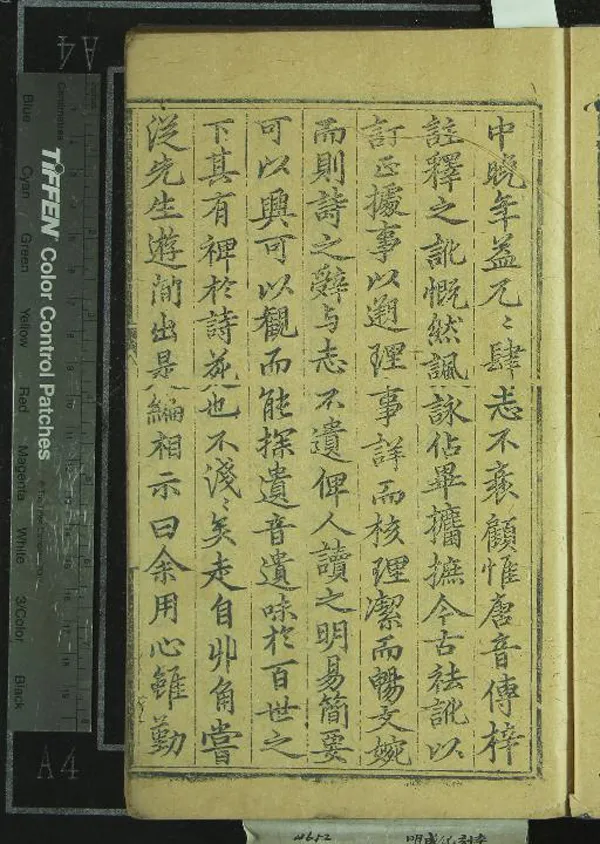 中晩年益兀〻肆志不衰顧惟唐音傳梓
註釋之訛慨然諷詠佔畢攟摭今古祛訛以
訂正據事以遡理事詳而核理潔而暢文婉
而則詩之辭与志不遺俾人讀之明易簡要
可以興可以觀而能探遺音遺味於百世之
下其有裨於詩苑也不淺〻矣走自丱角嘗
從先生遊間出是編相示曰余用心雖勤
A4
TIFFEN Color Control Patches
Blue Cyan Green Yellow Red Magenta White 3/Color Black
Centimetres
A4